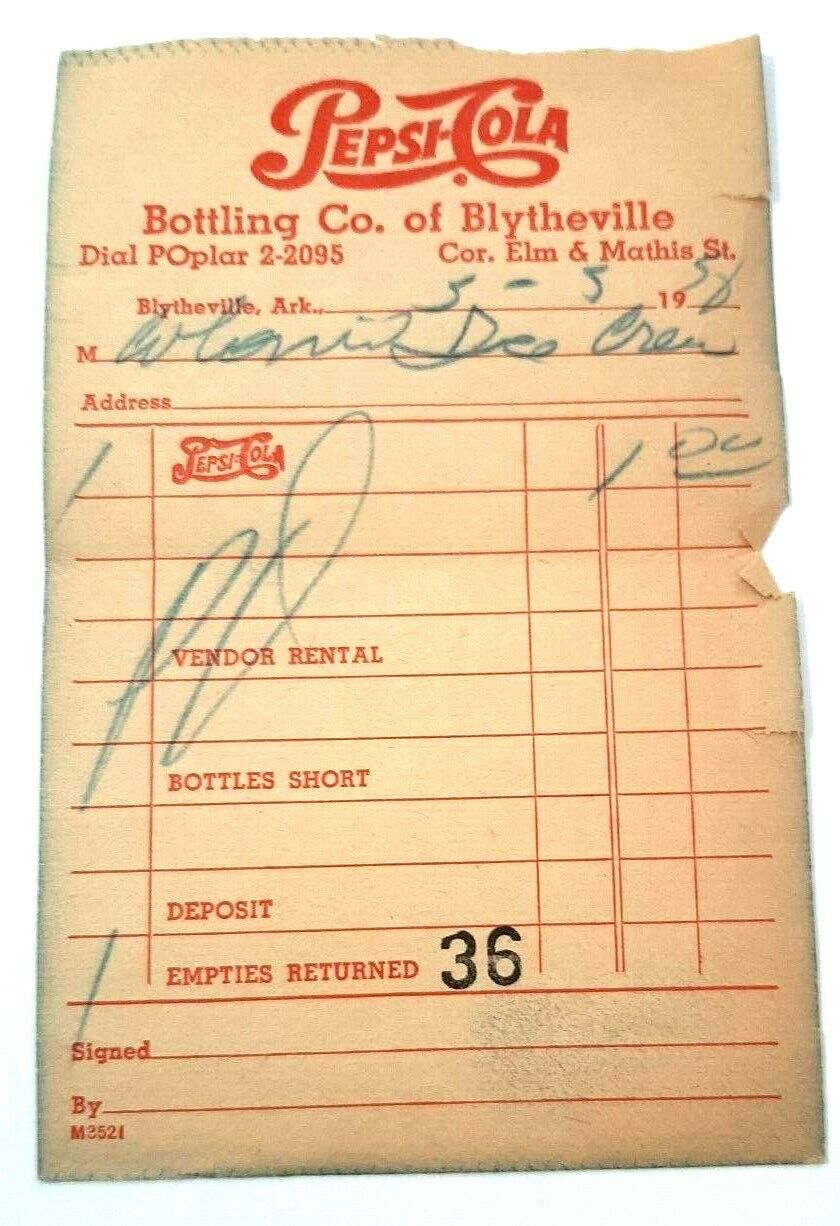 PEPSI-COLA
Bottling Co. of Blytheville
Dial POplar 2-2095 Cor. Elm & Mathis St.
Blytheville, Ark., 5 - 5 19 58
M
Address
1 PEPSI-COLA 1 00
VENDOR RENTAL
BOTTLES SHORT
DEPOSIT
1 EMPTIES RETURNED 36
Signed
By
M3521